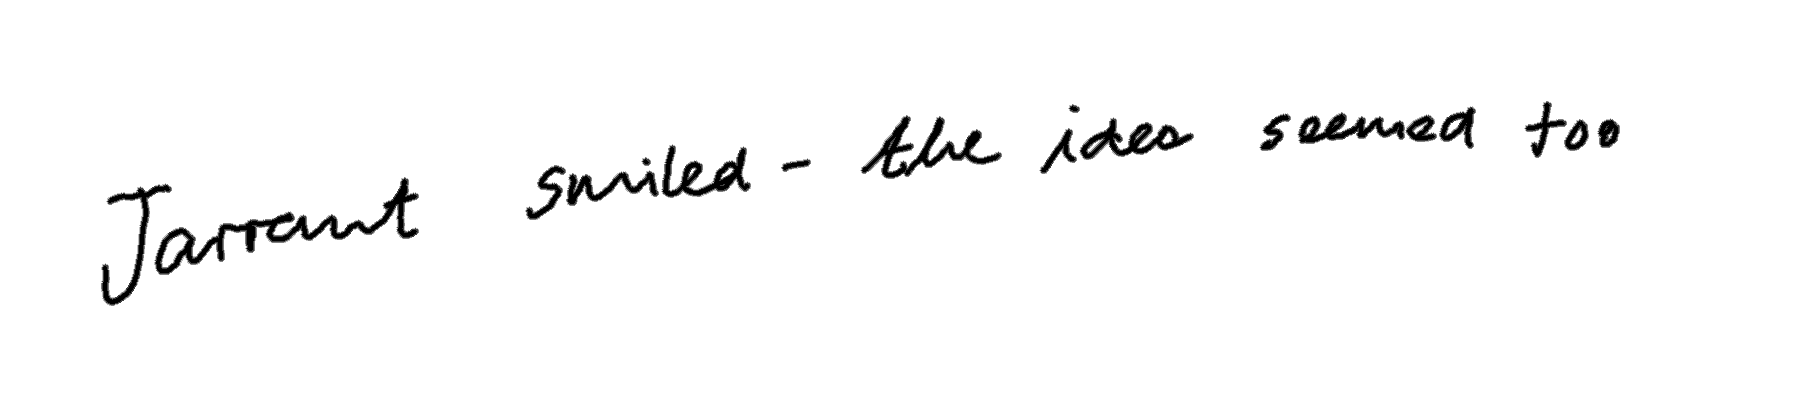 Jarrant smiled - the idea seemed too